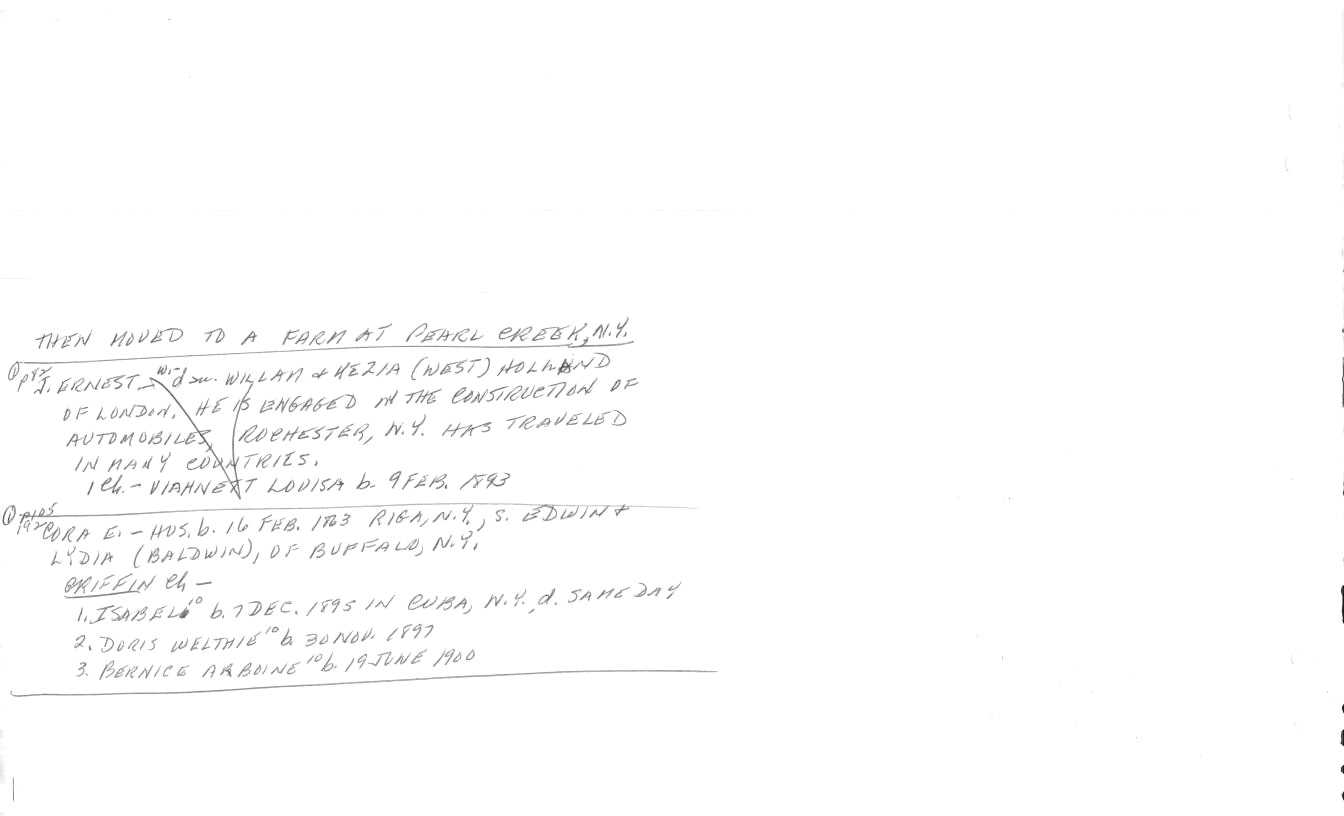 THEN MOVED TO A FARM AT PEARL CREEK, N.Y.
① p82
J. ERNEST - W.- d. WILLAM & KEZIA (WEST) HOLLAND
OF LONDON. HE IS ENGAGED IN THE CONSTRUCTION OF
AUTOMOBILES, ROCHESTER, N.Y. HAS TRAVELED
IN MANY COUNTRIES.
1 Ch. - LOUISA b. 9 FEB. 1893
① p105
CORA E. - HUS. b. 16 FEB. 1863 RIGA, N.Y., S. EDWIN &
LYDIA (BALDWIN), OF BUFFALO, N.Y.
GRIFFIN Ch -
1. ISABEL¹⁰ b. 7 DEC. 1895 IN CUBA, N.Y., d. SAME DAY
2. DORIS WELTHIE¹⁰ b. 30 NOV. 1897
3. BERNICE ARBOINE¹⁰ b. 19 JUNE 1900